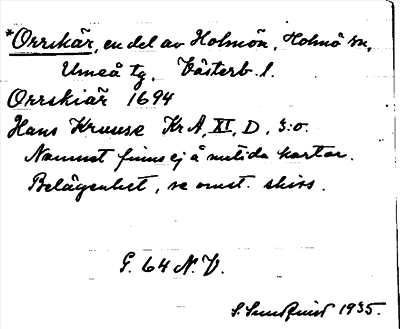 *Orrskär, en del av Holmön, Holmö sn,
Umeå tg. Västerb. l.
Orrskiär 1694
Hans Kruuse KrA, XI, D, 3:o.
Namnet finns ej å nutida kartor.
Belägenhet, se omst. skiss.
G. 64 N. V.
S. Sundqvist 1935.